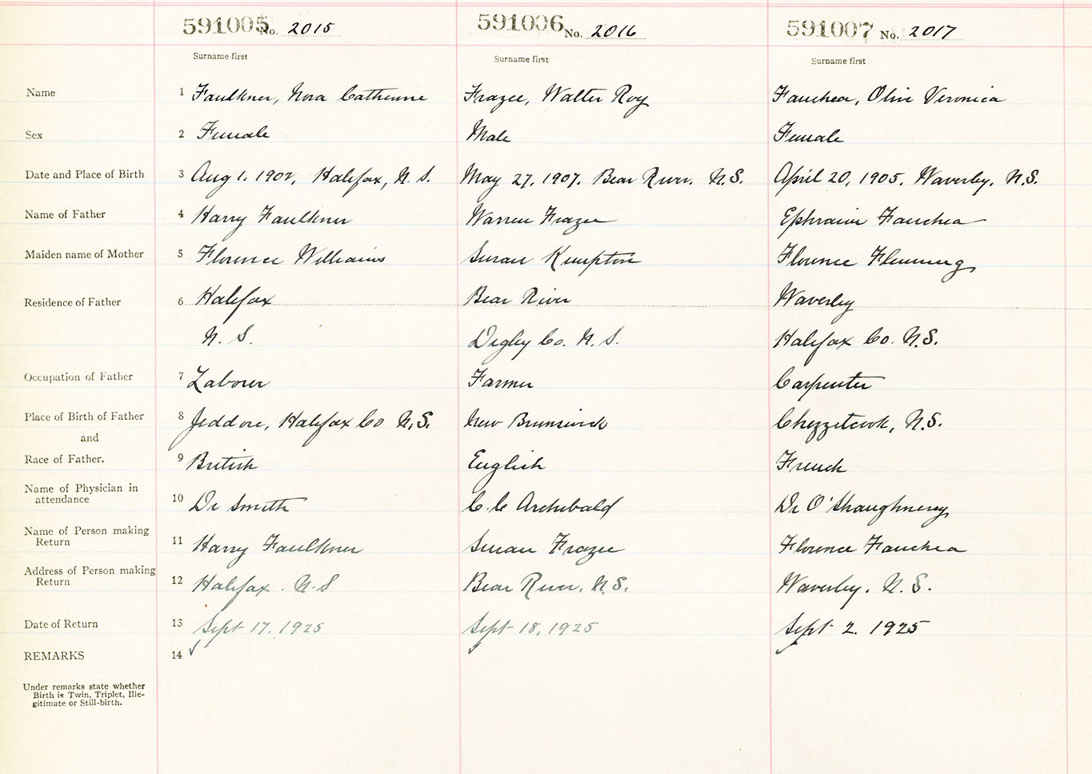 591005 No. 2015 591006 No. 2016 591007 No. 2017
Surname first Surname first Surname first
Name 1 Faulkner, Nora Catherine Frazee, Walter Roy Fauchea, Olive Veronica
Sex 2 Female Male Female
Date and Place of Birth 3 Aug 1. 1902, Halifax, N.S. May 27, 1907. Bear River. N.S. April 20, 1905. Waverley. N.S.
Name of Father 4 Harry Faulkner Warren Frazee Ephraim Fauchea
Maiden name of Mother 5 Florence Williams Susan Kempton Florence Flemming
Residence of Father 6 Halifax Bear River Waverley
N.S. Digby Co. N.S. Halifax Co. N.S.
Occupation of Father 7 Labourer Farmer Carpenter
Place of Birth of Father 8 Jeddore, Halifax Co N.S. New Brunswick Chezzetcook, N.S.
and
Race of Father. 9 British English French
Name of Physician in
attendance 10 Dr Smith C.C Archibald Dr O'Shaughnessy
Name of Person making
Return 11 Harry Faulkner Susan Frazee Florence Fauchea
Address of Person making
Return 12 Halifax. N.S Bear River, N.S. Waverley. N.S.
Date of Return 13 Sept 17. 1925 Sept 18, 1925 Sept 2. 1925
REMARKS 14
Under remarks state whether
Birth is Twin, Triplet, Ille-
gitimate or Still-birth.